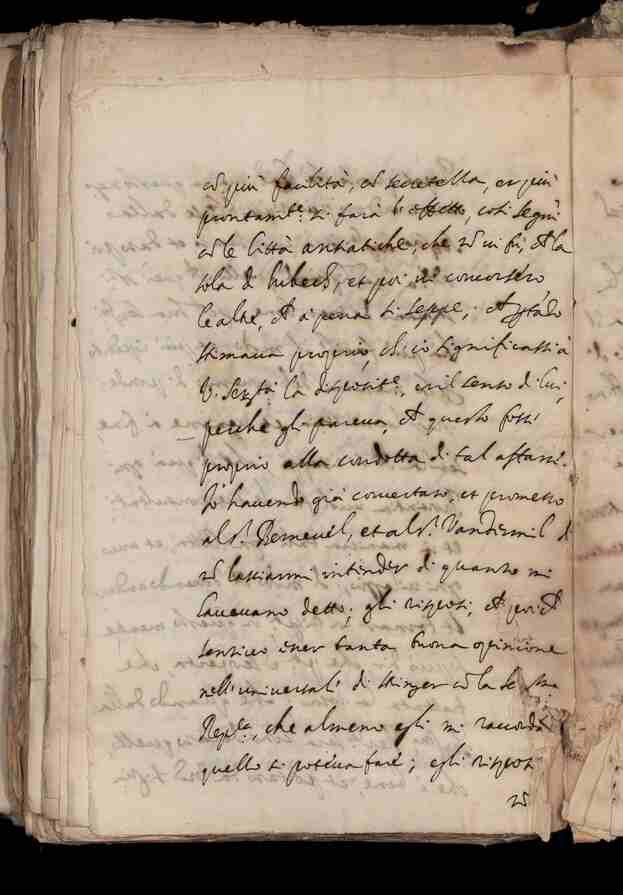 più facilità, secretella, et più
prontam.te si farà l'effetto, così seguì
le Città ansiatiche, che
sola di lubech, et poi concorsero
le altre, a pena si seppe;
stimava proprio, ch'io significassi à
V. Ser.tà la disposit.e, il senso di lui,
perche gli pareva, questo fosse
proprio alla condotta di tal affare.
Io havendo già concertato, et promesso
al S.r Bernevel, et al S.r Vandermil d
lasciarmi intender di quanto mi
havevano detto; gli risposi,
sentivo esser tanta buona opinione
nell'universale di stringer la
Rep.ca, che almeno egli mi raccordi
quello si poteva fare; egli rispose